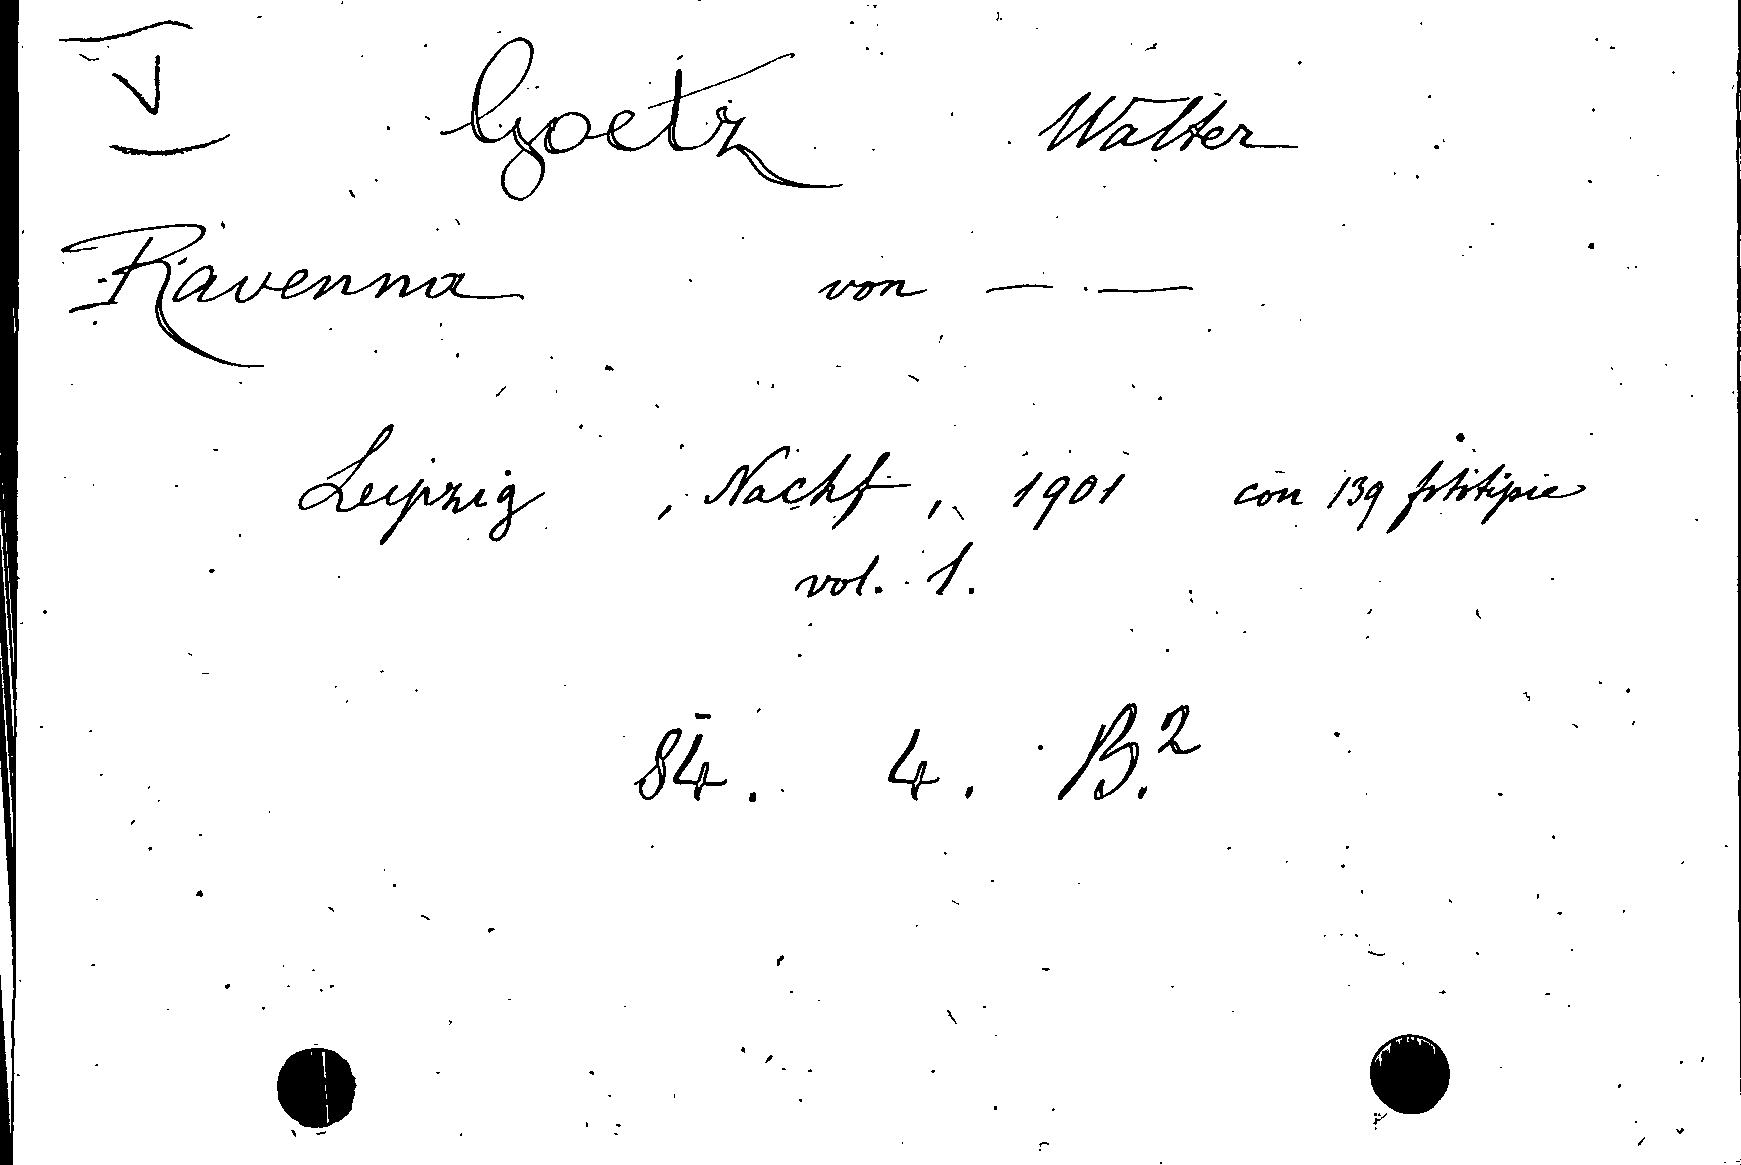 V Goetz Walter
Ravenna von — . —
Leipzig , Nachf , 1901 con 139 fototipie
vol. 1.
84. 4. B.²